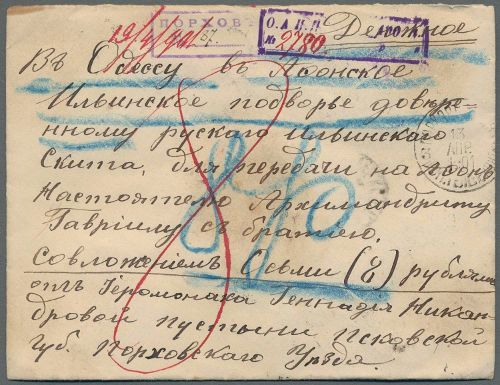 ПОРХОВ
О.А.И.П.
№ 2780
Денежное
Въ Одессу въ Аѳонское
Ильинское подворье довѣре-
нному рускаго Ильинскаго
Скита, для передачи на Аѳонъ
Настоятелю Архимандриту
Гавріилу съ братіею.
совложеніемъ Семи (7) рублями
отъ Іеромонаха Геннадія Никан
дровой пустыни Псковской
губ. Порховскаго Уѣзда.